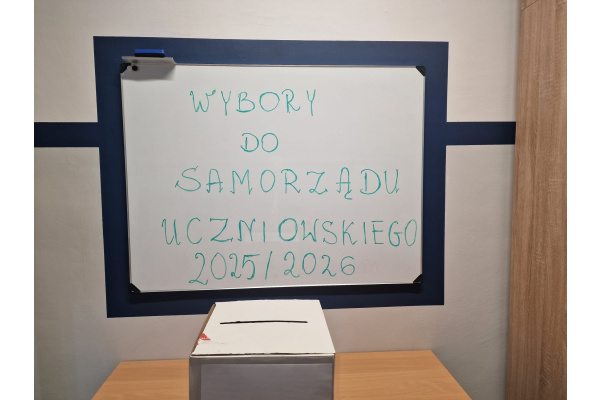 WYBORY
DO
SAMORZĄDU
UCZNIOWSKIEGO
2025/2026